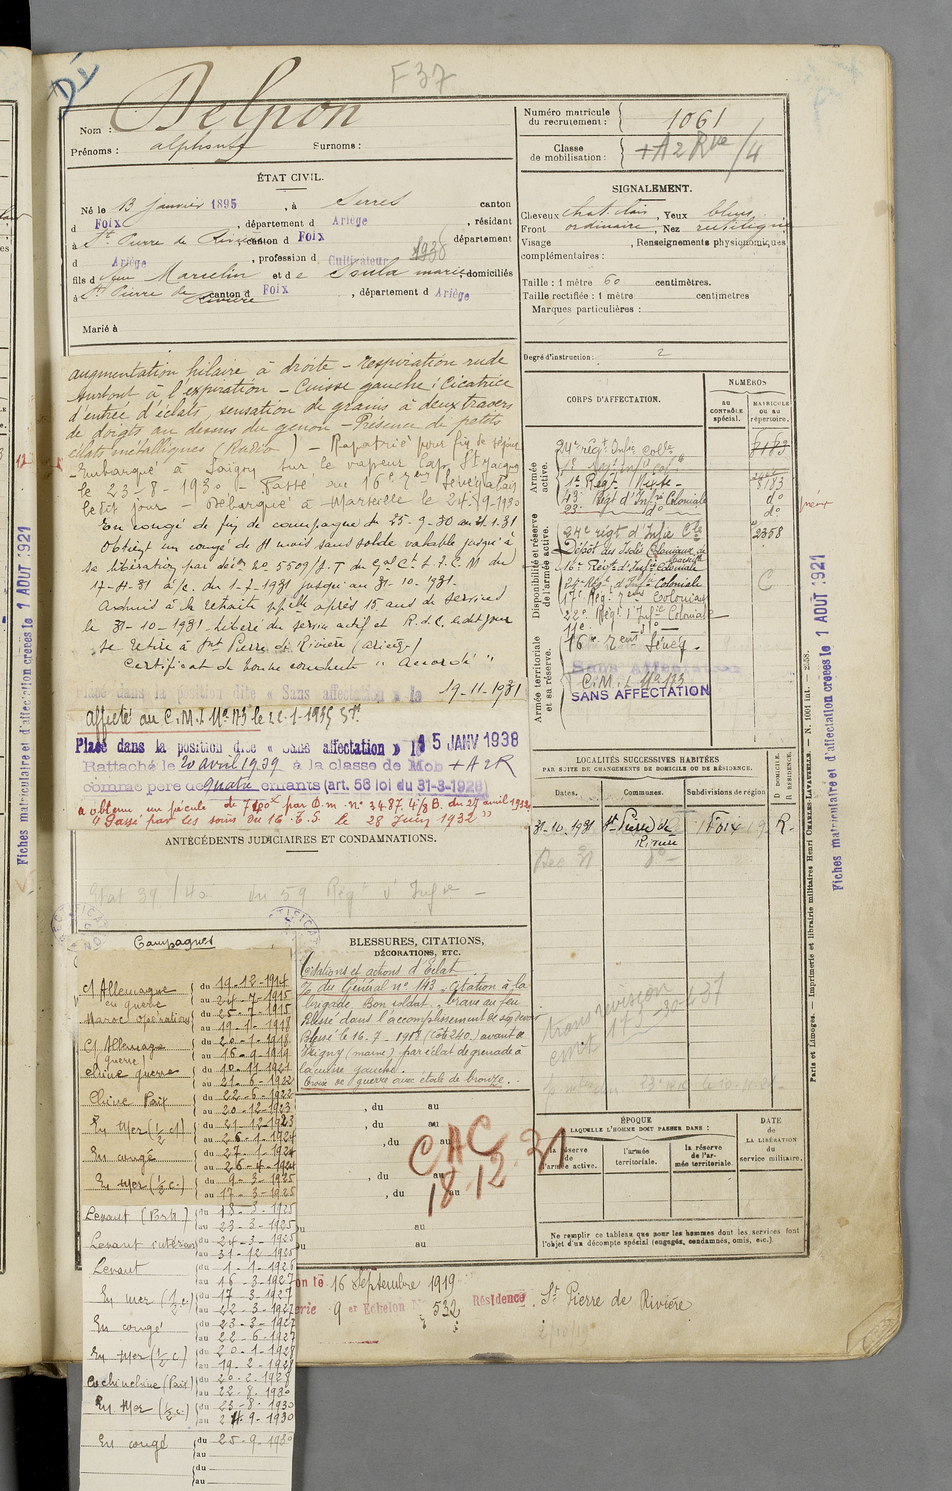 Dé
F37
Nom : Delpon
Prénoms : alphonse Surnoms :
ÉTAT CIVIL.
Né le 13 janvier 1895, à Serres canton
d Foix, département d Ariège, résidant
à St Pierre de Rivière canton d Foix département
d Ariège, profession d Cultivateur 1938
fils d feu Marcelin et de Soula marie domiciliés
à St Pierre de Rivière canton d Foix, département d Ariège
Marié à
Numéro matricule
du recrutement : 1061
Classe
de mobilisation : +A2 Rve/4
SIGNALEMENT.
Cheveux chat. clair, Yeux bleus
Front ordinaire, Nez rectiligne
Visage , Renseignements physionomiques
complémentaires :
Taille : 1 mètre 60 centimètres.
Taille rectifiée : 1 mètre centimètres
Marques particulières :
Degré d'instruction : 2
augmentation hilaire à droite – respiration rude
surtout à l'expiration – Cuisse gauche : Cicatrice
d'entrée d'éclats, sensation de grains à deux travers
de doigts au dessus du genou – Présence de petits
éclats métalliques (Radio) – Rapatrié pour fin de séjour
Embarqué à Saïgon sur le vapeur Cap St Jacques
le 23-8-1930 – Passé au 16e rgt Sénégalais
le dit jour – Débarqué à Marseille le 24-9-1930
En congé de fin de campagne du 25-9-30 au
Obtient un congé de mois sans solde valable jusqu'à
sa libération par déion No 5509/ du Gal Ct
17-4-31 a/c. du 1-7-1931 jusqu'au 31-10-1931.
Admis à la retraite après 15 ans de services
le 31-10-1931. libéré du service actif et R.d.C. ledit jour
se retire à St Pierre de Rivière (Ariège)
Certificat de bonne conduite "Accordé"
Placé dans la position dite « Sans affectation » le 19-11-1931
affecté au C.M.I No 173 le
Placé dans la position dite « Sans affectation » le 15 JANV 1938
Rattaché le 20 avril 1939 à la classe de Mob +A2R
comme père de quatre enfants (art. 58 loi du 31-3-1928)
a obtenu un pécule de par D.m. no 3487. 4/8 B. du 27 avril 1932
"Passé par les soins du 16 T.S. le 28 Juin 1932"
CORPS D'AFFECTATION.
NUMÉROS
AU CONTRÔLE spécial.
MATRICULE OU AU répertoire.
Armée active.
24e régt Infie colle
8183
43e Régt d'Infie Coloniale do
23e do do
Disponibilité et réserve de l'armée active.
24e régt d'Infie Cle 2358
Dépôt des Isolés Coloniaux de
16e Régt d'Infie Coloniale
Régt d'Infie Coloniale C
22e Régt d'Infie Coloniale
16e rgt Sénég.
Armée territoriale et sa réserve.
Sans Affectation
C.M.I No 173
SANS AFFECTATION
LOCALITÉS SUCCESSIVES HABITÉES
PAR SUITE DE CHANGEMENTS DE DOMICILE OU DE RÉSIDENCE.
Dates. Communes. Subdivisions de région. D. DOMICILE. R. RÉSIDENCE.
31-10-1931 St Pierre de Rivière Foix R.
ANTÉCÉDENTS JUDICIAIRES ET CONDAMNATIONS.
Etat 39/40 du 59 Régt d'Infie
Campagnes
C/ Allemagne du 19-12-1914
en guerre au 24-7-1915
Maroc opérations du 25-7-1915
au 19-1-1918
C/ Allemagne du 20-1-1918
(guerre) au 16-9-1919
Chine guerre du 10-11-1921
au 21-6-1922
Chine Paix du 22-6-1922
au 20-12-1923
En Mer (1/2 c) du 21-12-1923
au 26-1-1924
En congé du 27-1-1924
au 26-4-1924
En Mer (1/2 c.) du 9-3-1925
au 17-3-1925
Levant (Port) du 18-3-1925
au 23-3-1925
Levant intérieur du 24-3-1925
au 31-12-1925
Levant du 1-1-1926
au 16-3-1927
En mer (1/2 c) du 17-3-1927
au 22-3-1927
En congé du 23-3-1927
au 22-6-1927
En Mer (1/2 c) du 20-1-1928
au 19-2-1928
Cochinchine (Paix) du 20-2-1928
au 22-8-1930
En Mer (1/2 c) du 23-8-1930
au 24-9-1930
En congé du 25-9-1930
au
du
au
BLESSURES, CITATIONS,
DÉCORATIONS, ETC.
Citations et actions d'Eclat
O/ du Général no 143. Citation à la
brigade. Bon soldat, brave au feu
Blessé dans l'accomplissement de son devoir
Blessé le 16-7-1918 (côte 240) avant de
Vrigny (marne) par éclat de grenade à
la cuisse gauche.
Croix de guerre avec étoile de bronze.
, du au
, du au
, du au
, du au
, du au
au
au
CAC
18.12.31
ÉPOQUE
LAQUELLE L'HOMME DOIT PASSER DANS :
la réserve de l'armée active.
l'armée territoriale.
la réserve de l'armée territoriale.
DATE de LA LIBÉRATION du service militaire.
Ne remplir ce tableau que pour les hommes dont les services font
l'objet d'un décompte spécial (engagés, condamnés, omis, etc.).
on le 16 Septembre 1919
9 er Echelon No 532 Résidence St Pierre de Rivière
Fiches matriculaire et d'affectation créées le 1 AOUT 1921
Fiches matriculaire et d'affectation créées le 1 AOUT 1921
Paris et Limoges. — Imprimerie et librairie militaires Henri CHARLES-LAVAUZELLE. — N. 1001 int. — 2558.